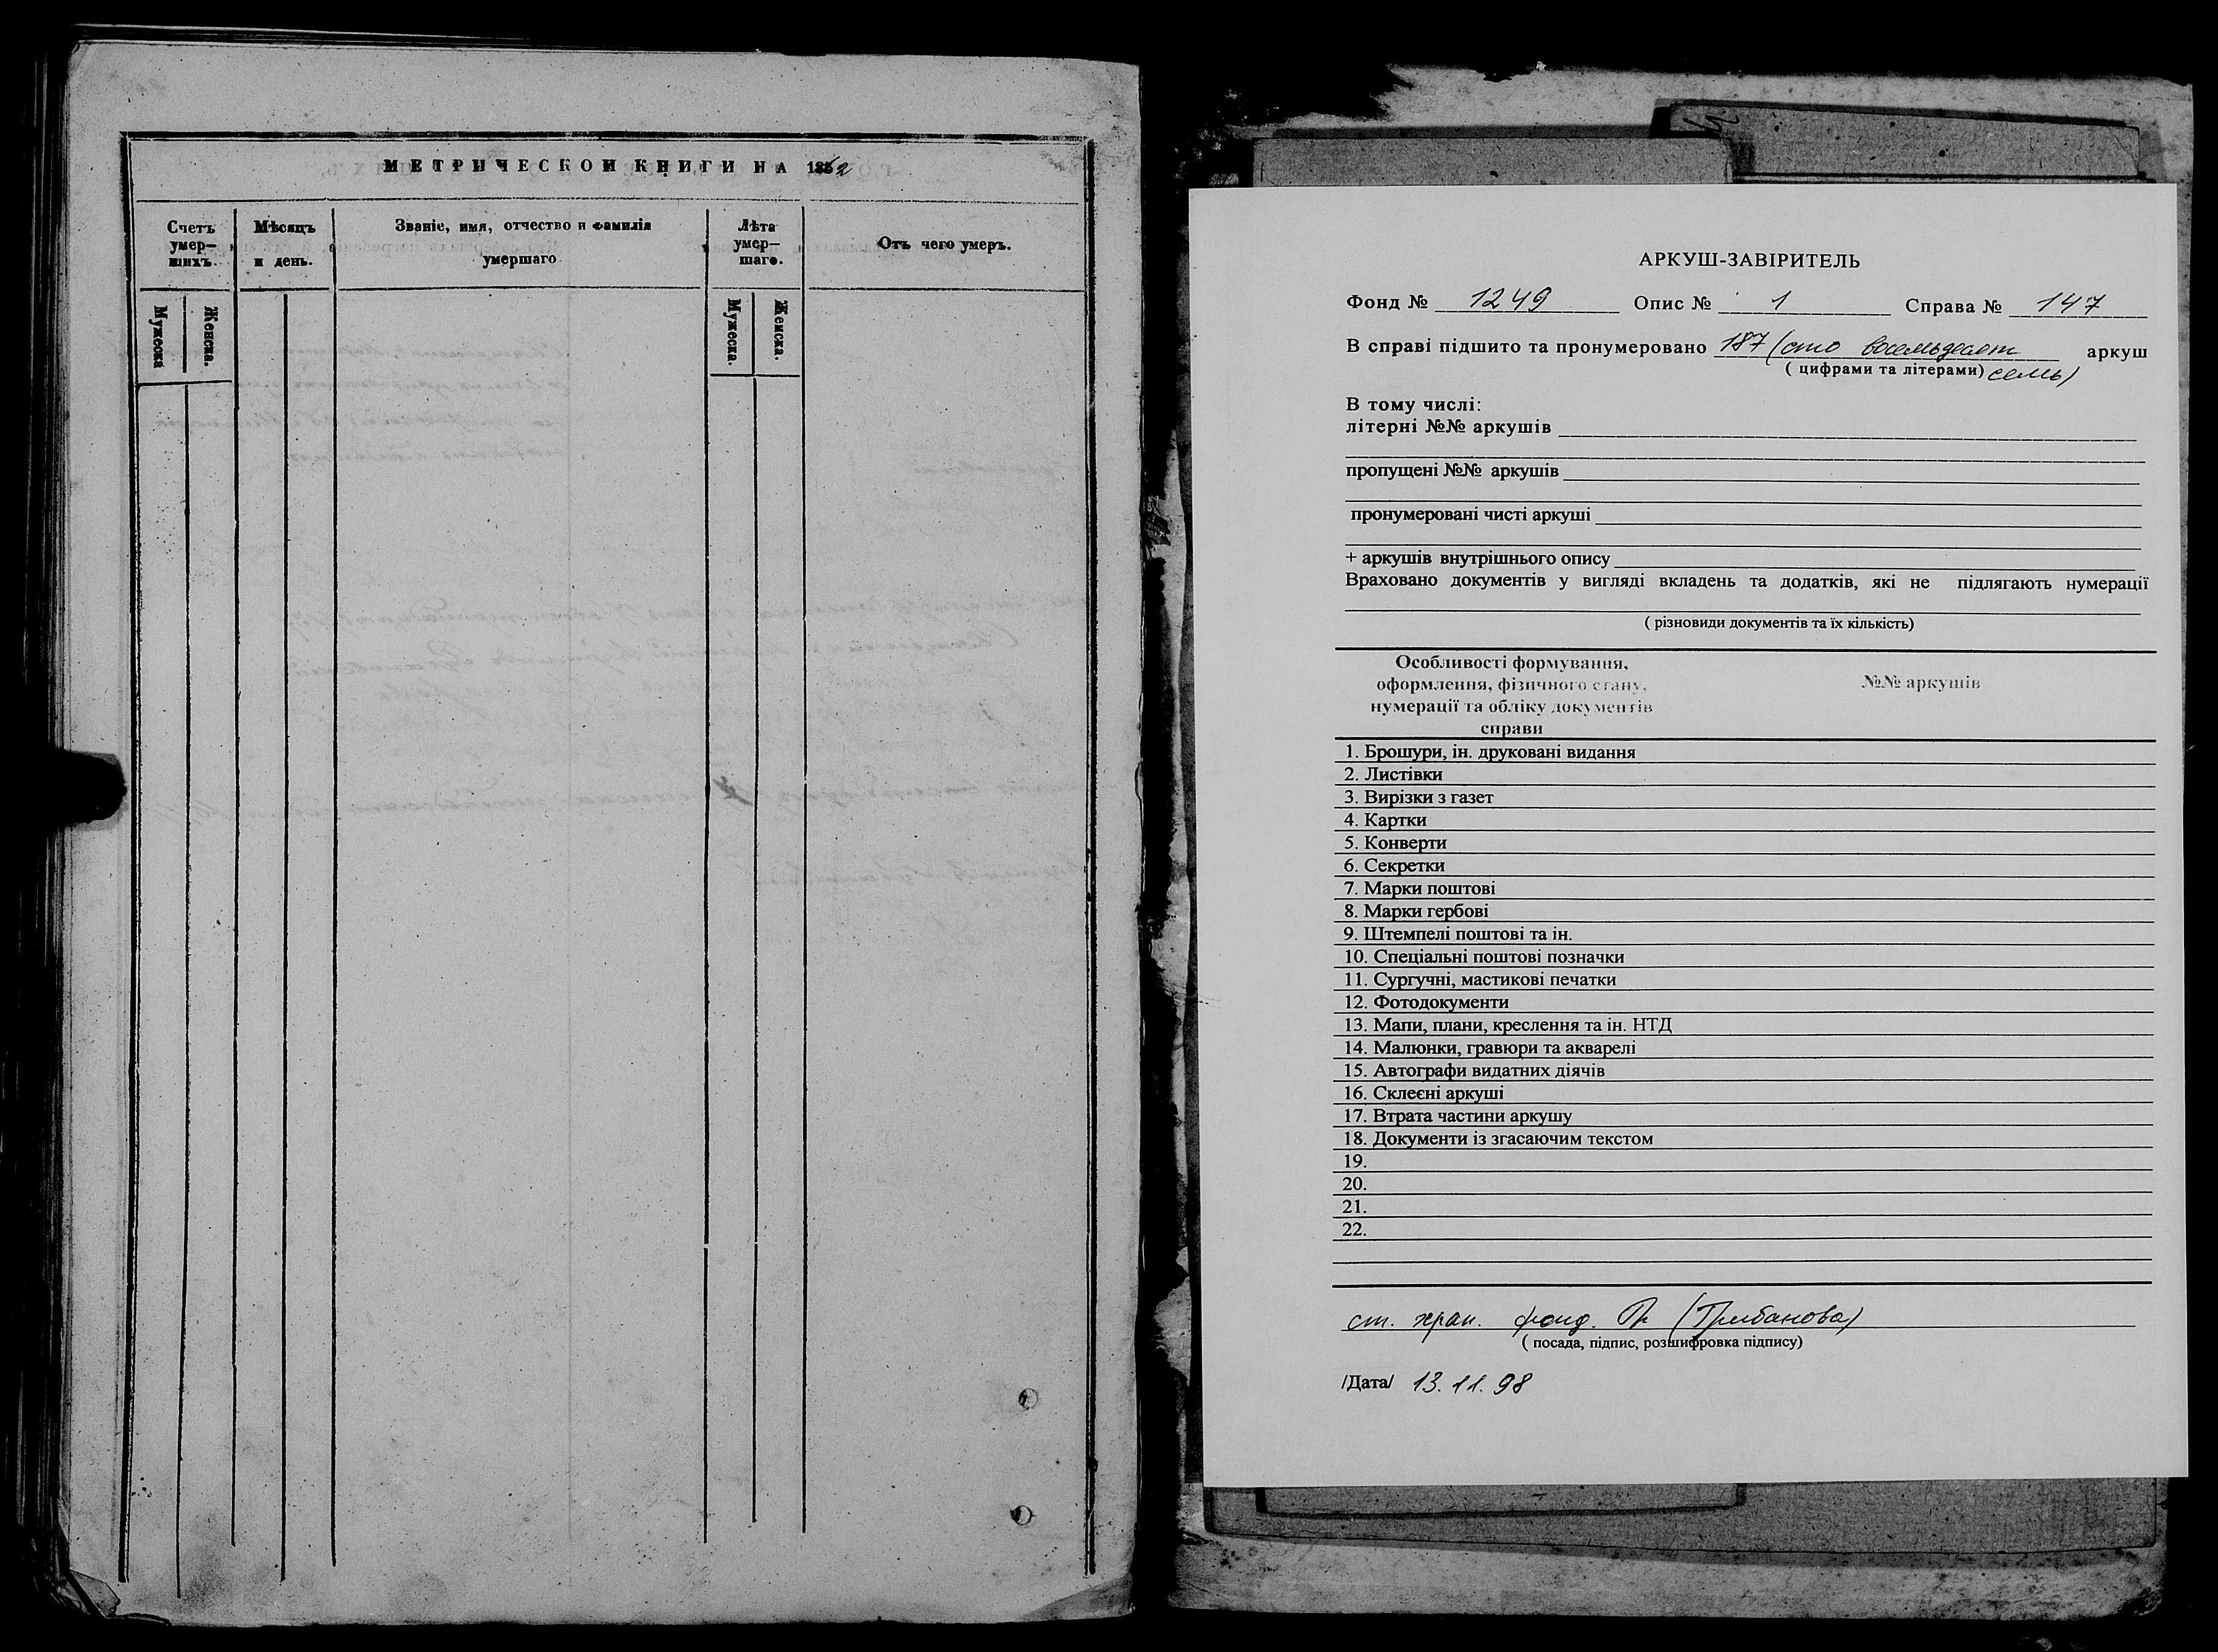 МЕТРИЧЕСКОЙ КНИГИ НА 1862
Счетъ умер—шихъ.
Мѣсяцъ и день.
Званіе, имя, отчество и фамилія умершаго
Лѣта умер—шаго.
Отъ чего умеръ.
Мужеска
Женска.
Мужеска.
Женска.
АРКУШ-ЗАВІРИТЕЛЬ
Фонд № 1249 Опис № 1 Справа № 147
В справі підшито та пронумеровано 187 (сто восемьдесят аркуш
( цифрами та літерами) семь)
В тому числі:
літерні №№ аркушів
пропущені №№ аркушів
пронумеровані чисті аркуші
+ аркушів внутрішнього опису
Враховано документів у вигляді вкладень та додатків, які не підлягають нумерації
( різновиди документів та їх кількість)
Особливості формування,
оформлення, фізичного стану,
нумерації та обліку документів
справи
№№ аркушів
1. Брошури, ін. друковані видання
2. Листівки
3. Вирізки з газет
4. Картки
5. Конверти
6. Секретки
7. Марки поштові
8. Марки гербові
9. Штемпелі поштові та ін.
10. Спеціальні поштові позначки
11. Сургучні, мастикові печатки
12. Фотодокументи
13. Мапи, плани, креслення та ін. НТД
14. Малюнки, гравюри та акварелі
15. Автографи видатних діячів
16. Склеєні аркуші
17. Втрата частини аркушу
18. Документи із згасаючим текстом
19.
20.
21.
22.
ст. хран. фонд. (Грибанова)
( посада, підпис, розшифровка підпису)
/Дата/ 13.11.98